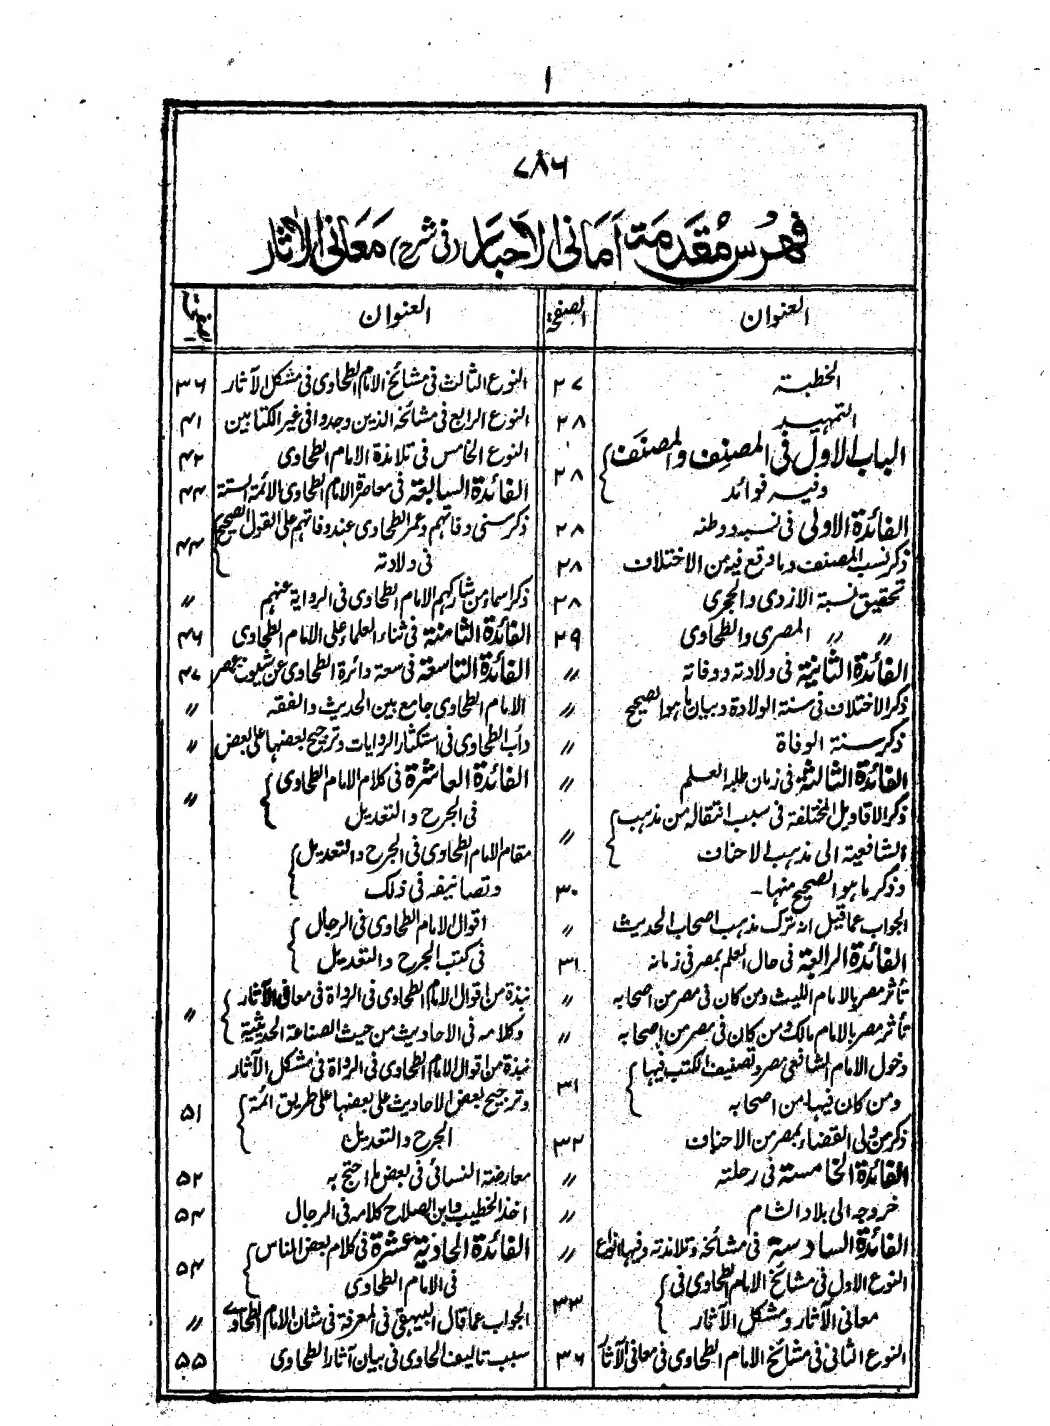 ١
٧٨٦
فهرس مقدمة أماني الاحبار (في شرح) معاني الاثار
العنوان
الصفحة
الخطبة
٢٧
التمهيد
٢٨
الباب الاول في المصنِف والمصنَف
وفيه فوائد
٢٨
الفائدة الاولى في نسبه ووطنه
٢٨
ذكر نسب المصنف وما وقع فيه من الاختلاف
٢٨
تحقيق نسبة الازدي والحجري
٢٨
〃 〃 المصري والطحاوي
٢٩
الفائدة الثانية في ولادته ووفاته
〃
ذكر الاختلاف في سنة الولادة وبيان ما هو الصحيح
〃
ذكر سنة الوفاة
〃
الفائدة الثالثة في زمان طلبه العلم
〃
ذكر الاقاويل المختلفة في سبب انتقاله من مذهب
الشافعية الى مذهب الاحناف
〃
وذكر ما هو الصحيح منها۔
٣٠
الجواب عما قيل انه ترك مذهب اصحاب الحديث
〃
الفائدة الرابعة في حال العلم بمصر في زمانه
٣١
تأثر مصر بالامام الليث ومن كان في مصر من اصحابه
〃
تأثر مصر بالامام مالك ومن كان في مصر من اصحابه
〃
دخول الامام الشافعي مصر وتصنيف الكتب فيها
ومن كان فيها من اصحابه
٣١
ذكر من ولى القضاء بمصر من الاحناف
٣٢
الفائدة الخامسة في رحلته
〃
خروجه الى بلاد الشام
〃
الفائدة السادسة في مشائخه وتلامذته وفيها انواع
〃
النوع الاول في مشائخ الامام الطحاوي في
معاني الآثار ومشكل الآثار
٣٣
النوع الثاني في مشائخ الامام الطحاوي في معاني الآثار
٣٦
العنوان
الصفحة
النوع الثالث في مشائخ الامام الطحاوي في مشكل الآثار
٣٦
النوع الرابع في مشائخه الذين وجدوا في غير الكتابين
٤١
النوع الخامس في تلامذة الامام الطحاوي
٤٢
الفائدة السابعة في معاصرة الامام الطحاوي الائمة الستة
٤٤
ذكر سني وفاتهم وعمر الطحاوي عند وفاتهم على القول الصحيح
في ولادته
٤٤
ذكر اسماء من شاركهم الامام الطحاوي في الرواية عنهم
〃
الفائدة الثامنة في ثناء العلماء على الامام الطحاوي
٤٦
الفائدة التاسعة في سعة دائرة الطحاوي عن شيوخ مصر
٤٧
الامام الطحاوي جامع بين الحديث والفقه
〃
دأب الطحاوي في استكثار الروايات وترجيح بعضها على بعض
〃
الفائدة العاشرة في كلام الامام الطحاوي
في الجرح والتعديل
〃
مقام الامام الطحاوي في الجرح والتعديل
وتصانيفه في ذلك
اقوال الامام الطحاوي في الرجال
في كتب الجرح والتعديل
نبذة من اقوال الامام الطحاوي في الرواة في معاني الآثار
وكلامه في الاحاديث من حيث الصناعة الحديثية
〃
نبذة من اقوال الامام الطحاوي في الرواة في مشكل الآثار
وترجيح بعض الاحاديث على بعضها على طريق ائمة
الجرح والتعديل
٥١
معارضة النسائي في بعض ما احتج به
٥٢
اخذ الخطيب وابن الصلاح كلامه في الرجال
٥٣
الفائدة الحادية عشرة في كلام بعض الناس
في الامام الطحاوي
٥٣
الجواب عما قال البيهقي في المعرفة في شان الامام الطحاوي
〃
سبب تاليف الحاوي في بيان آثار الطحاوي
٥٥